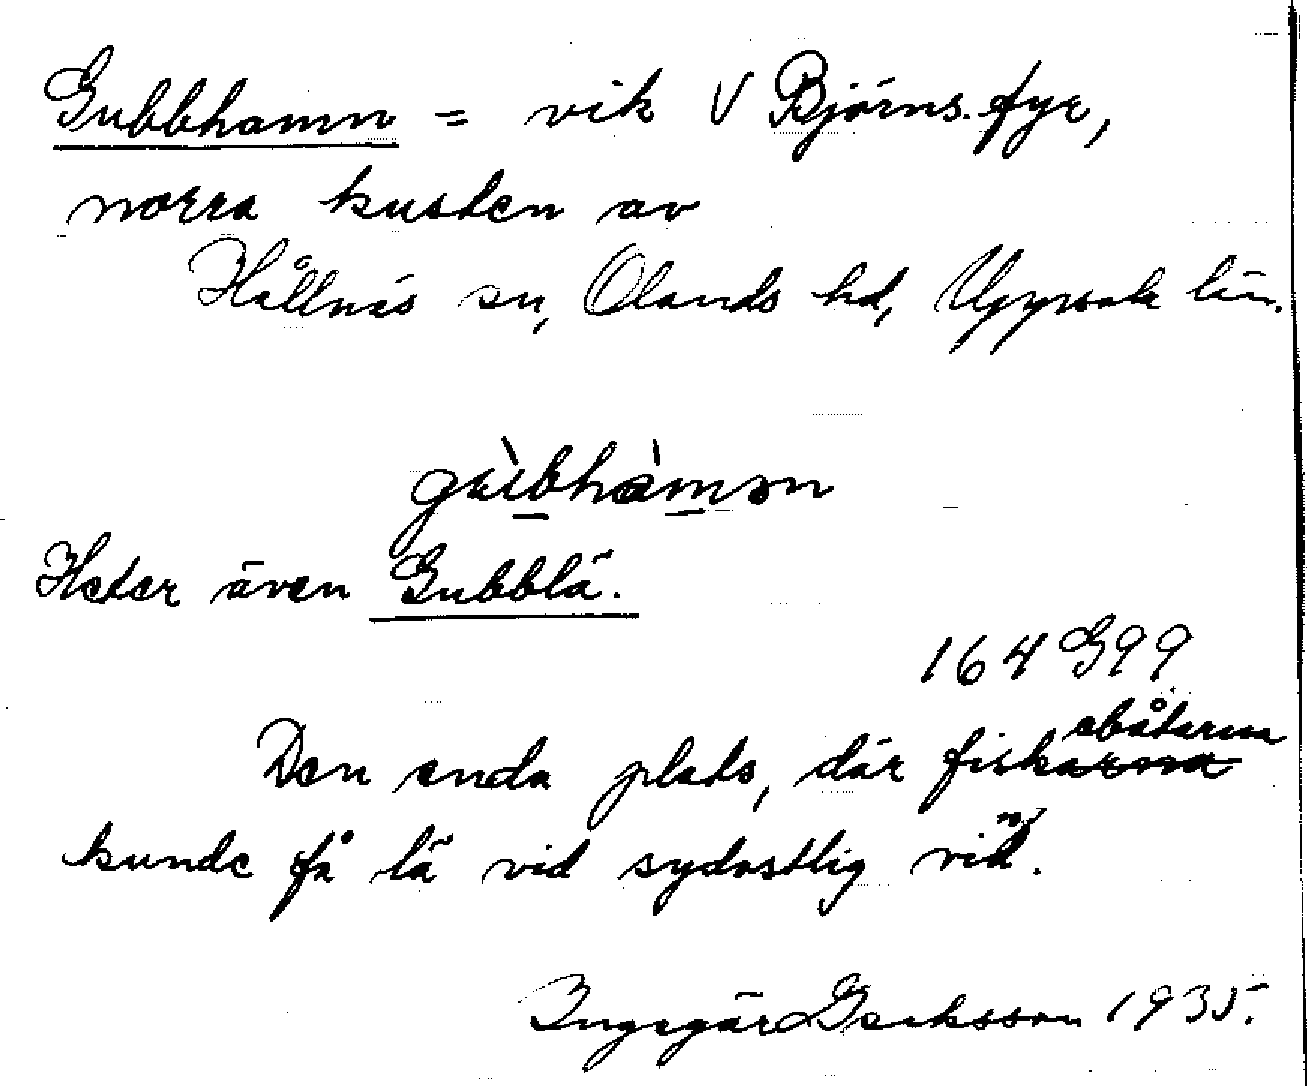 Gubbhamn = vik V Björns fyr,
norra kusten av
Hållnäs sn, Olands hd, Uppsala län.
Heter även Gubblä.
164 G 99
Den enda plats, där fiskebåtarna
kunde få lä vid sydostlig vind.
Ingegär Eriksson 1935.